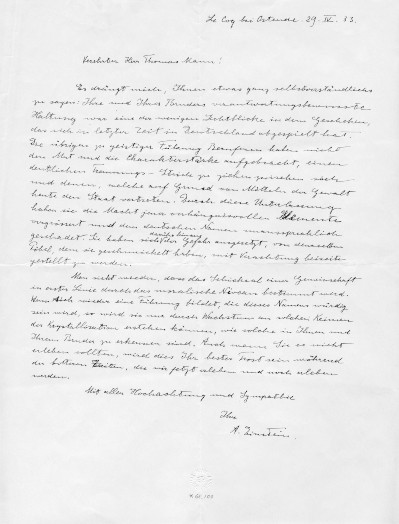 Le Coq bei Ostende 29. IV. 33.
Verehrter Herr Thomas Mann!
Es drängt mich, Ihnen etwas ganz selbstverständliches
zu sagen: Ihre und Ihres Bruders verantwortungsbewusste
Haltung war eine der wenigen Lichtblicke in dem Geschehen,
das sich in letzter Zeit in Deutschland abgespielt hat.
Die übrigen zu geistiger Führung Berufenen haben nicht
den Mut und die Charakterstärke aufgebracht, einen
deutlichen Trennungs-Strich zu ziehen zwischen sich
und denen, welche auf Grund von Mitteln der Gewalt
heute den Staat vertreten. Durch diese Unterlassung
haben sie die Macht jener verhängnisvollen Elemente
vergrössert und dem deutschen Namen unaussprechlich
geschadet. Sie haben sich der Gefahr ausgesetzt, von demselben
Pöbel, dem sie geschmeichelt haben, mit Verachtung beiseite
gestellt zu werden.
Man sieht wieder, dass das Schicksal einer Gemeinschaft
in erster Linie durch das moralische Niveau bestimmt wird.
Wenn sich wieder eine Führung bildet, die dieses Namens würdig
sein wird, so wird sie nur durch Wachstum an solchen Keimen
der Krystallisation entstehen können, wie solche in Ihnen und
Ihrem Bruder zu erkennen sind. Auch wenn Sie es nicht
erleben sollten, wird dies Ihr bester Trost sein während
der bitteren Zeiten, die wir jetzt erleben und noch erleben
werden.
Mit aller Hochachtung und Sympathie
Ihr
A. Einstein.